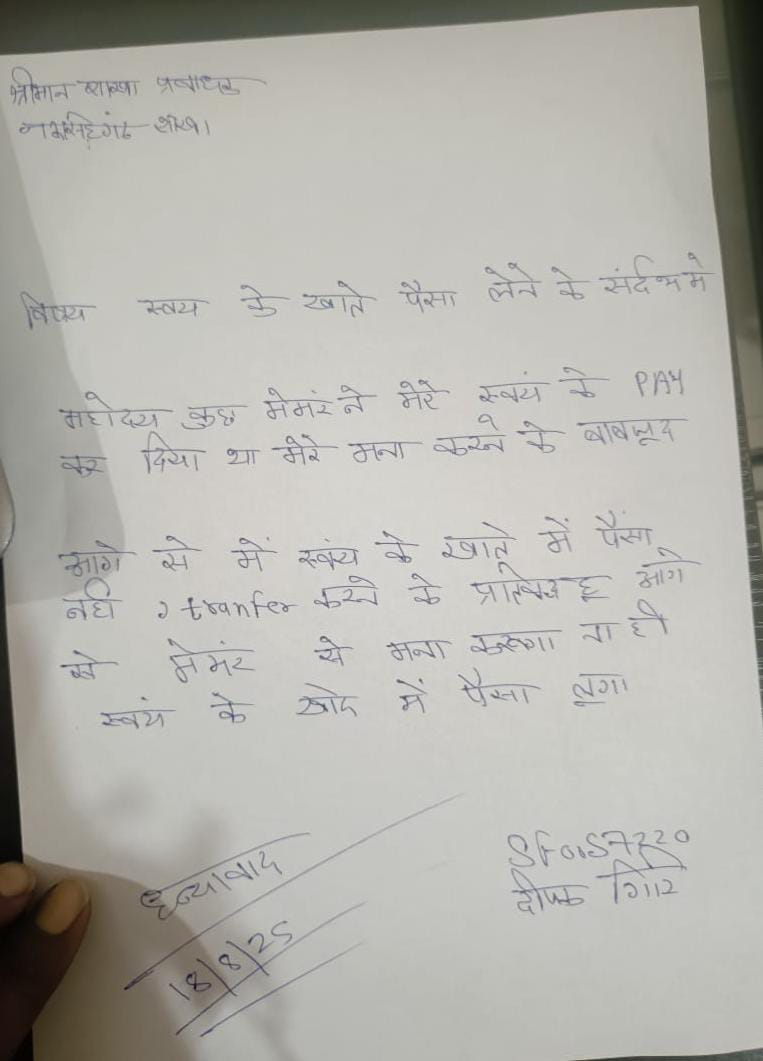 श्रीमान शाखा प्रबंधक
नरसिंहगंढ शाखा
विषय स्वय के खाते पैसा लेने के संर्दभ मे
महोदय कुछ मेमंर ने मेरे स्वयं के PAY
कर दिया था मेरे मना करने के बाबजूद
आगे से में स्वंय के खाते में पैसा
नही tranfer करने के प्रतिबद्ध हू आगे
से मेमंर से मना करूगा ना ही
स्वयं के खाते में पैसा लूगा
धन्यावाद
18/8/25
SF0057220
दीपक गिरि